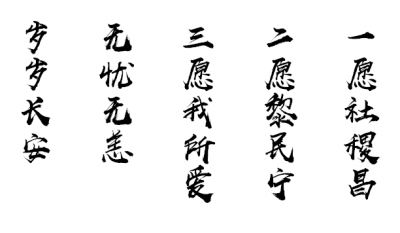 一愿社稷昌
二愿黎民宁
三愿我所爱
无忧无恙
岁岁长安